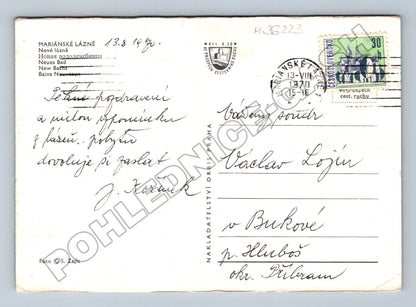 MARIÁNSKÉ LÁZNĚ
Nové lázně
Neues Bad
New Baths
Bains Nouveaux
13.8.1970
Pěkné pozdravení
a milou vzpomínku
z lázní. pobytu
dovoluje si zaslat
J. 
Foto S. Zajíc
NAKLADATELSTVÍ ORBIS PRAHA
M36223
13.-VIII
1970
15-16
ČESKOSLOVENSKO
30
cest. ruchu
Vážený soudr
Václav Lojín
v Bukové
p. Hluboš
okr. Příbram
POHLEDNICE.COM